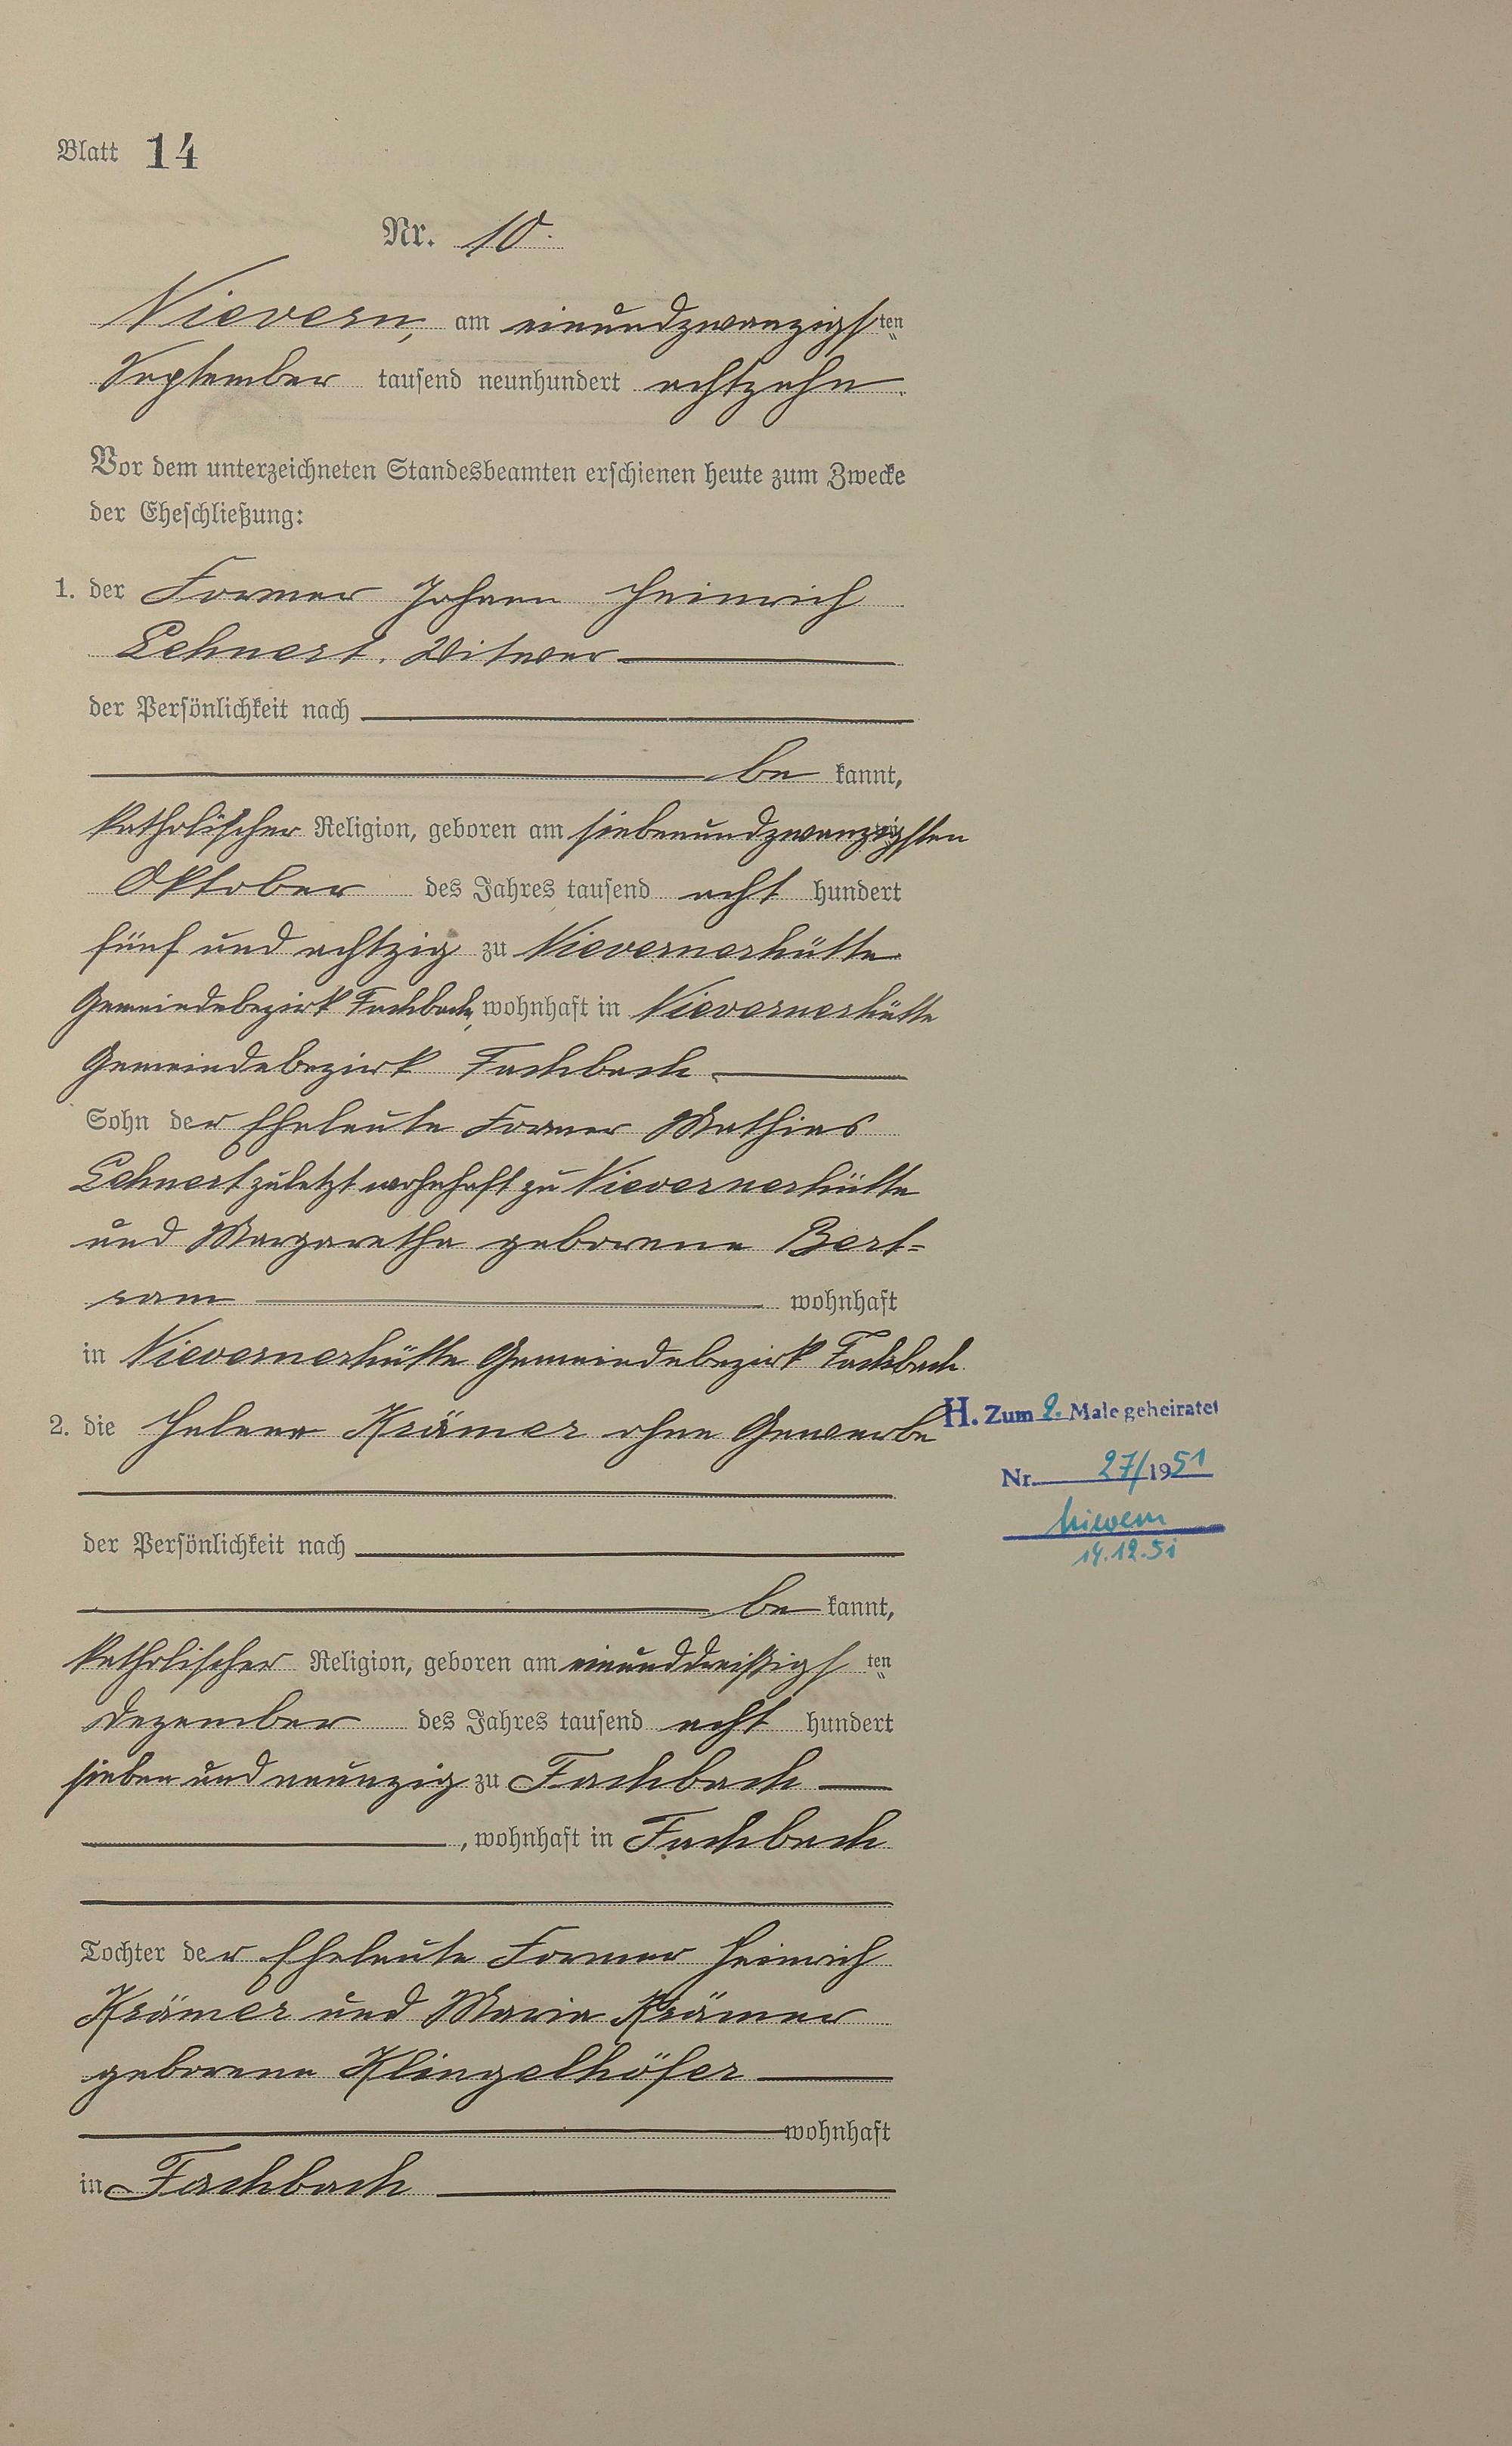 Blatt 14
Nr. 10.
Nievern, am einundzwanzigs ten
September tausend neunhundert achtzehn.
Vor dem unterzeichneten Standesbeamten erschienen heute zum Zwecke
der Eheschließung:
1. der Former Johann Heinrich
Lehnert, Witwer
der Persönlichkeit nach
be kannt,
katholischer Religion, geboren am siebenundzwanzigsten
Oktober des Jahres tausend acht hundert
fünf und achtzig zu Nievernerhütte
Gemeindebezirk Fachbach, wohnhaft in Nievernerhütte
Gemeindebezirk Fachbach,
Sohn der Eheleute Former Mathias
Lehnert zuletzt wohnhaft zu Nievernerhütte
und Margaretha geborene Bert=
ram wohnhaft
in Nievernerhütte Gemeindebezirk Fachbach
2. die Helena Krämer ohne Gewerbe
H. Zum 2. Male geheiratet
Nr. 27/1951
Nievern
14.12.51
der Persönlichkeit nach
be kannt,
katholischer Religion, geboren am einunddreißigs ten
Dezember des Jahres tausend acht hundert
sieben und neunzig zu Fachbach
, wohnhaft in Fachbach
Tochter der Eheleute Former Heinrich
Krämer und Maria Krämer
geborene Klingelhöfer
wohnhaft
in Fachbach